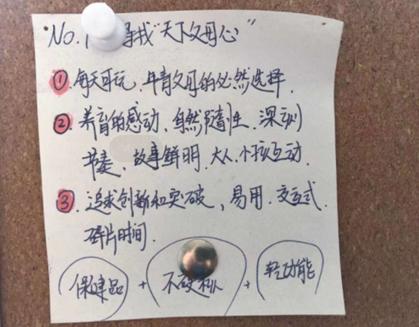 No.1 寻找"天下父母心"
① 每天可玩,年青父母的必然选择.
② 养育的感动、自然随性、深刻
节奏、故事鲜明、大人、小孩互动.
③ 追求创新和突破、易用、交互式.
碎片时间.
保健品 + 不硬 + 轻功能